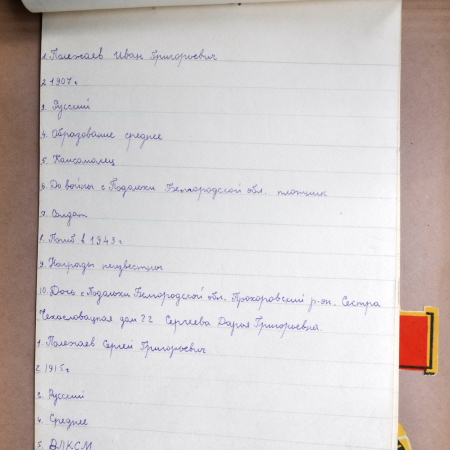 1. Полежаев Иван Григорьевич
2 1907 г
3. Русский
4. Образование среднее
5. Комсомолец
6. До войны с Подольхи Белгородской обл. плотник
7. Солдат
8. Погиб в 1943 г
9. Награды неизвестны
10. Дочь с Подольхи Белгородской обл. Прохоровский р-он. Сестра
Чехословацкая дом 22 Сергеева Дарья Григорьевна.
1. Полежаев Сергей Григорьевич
2. 1915 г
3. Русский
4. Среднее
5. ВЛКСМ